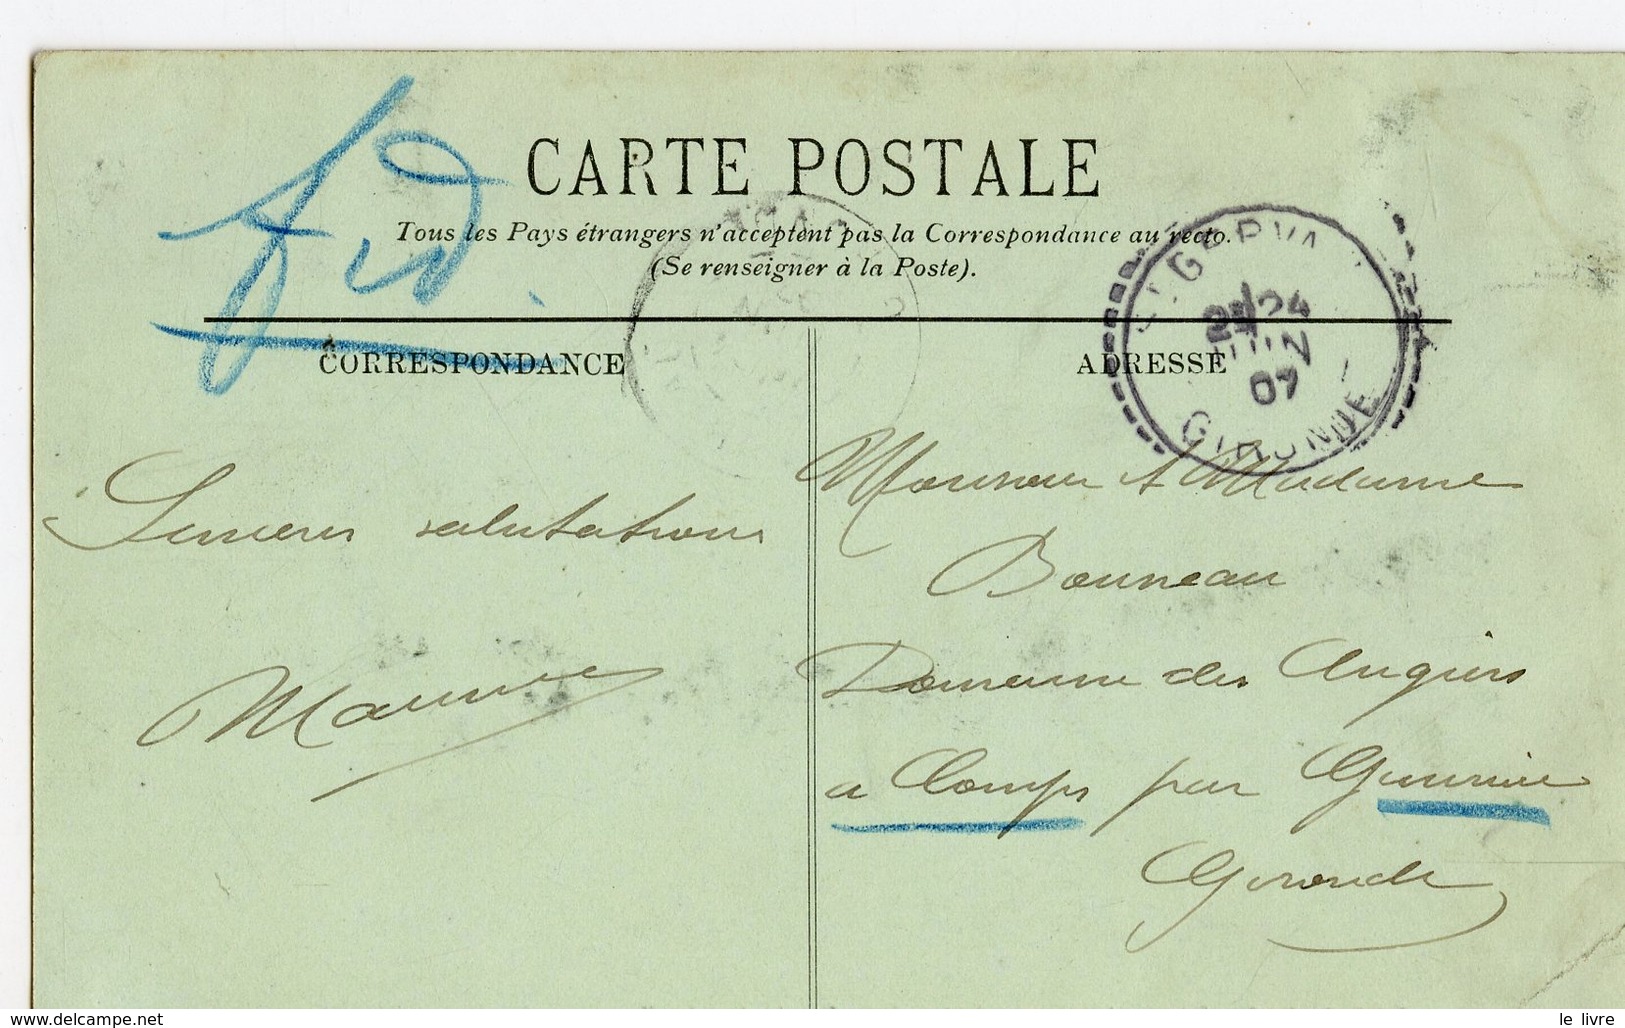 CARTE POSTALE
Tous les Pays étrangers n'acceptent pas la Correspondance au recto.
(Se renseigner à la Poste).
CORRESPONDANCE
ADRESSE
24
07
GIRONDE
Sincères salutations
Maurice
Monsieur et Madame
Bonneau
Domaine des Augiers
a Comps par Gauriac
Gironde
www.delcampe.net
le livre